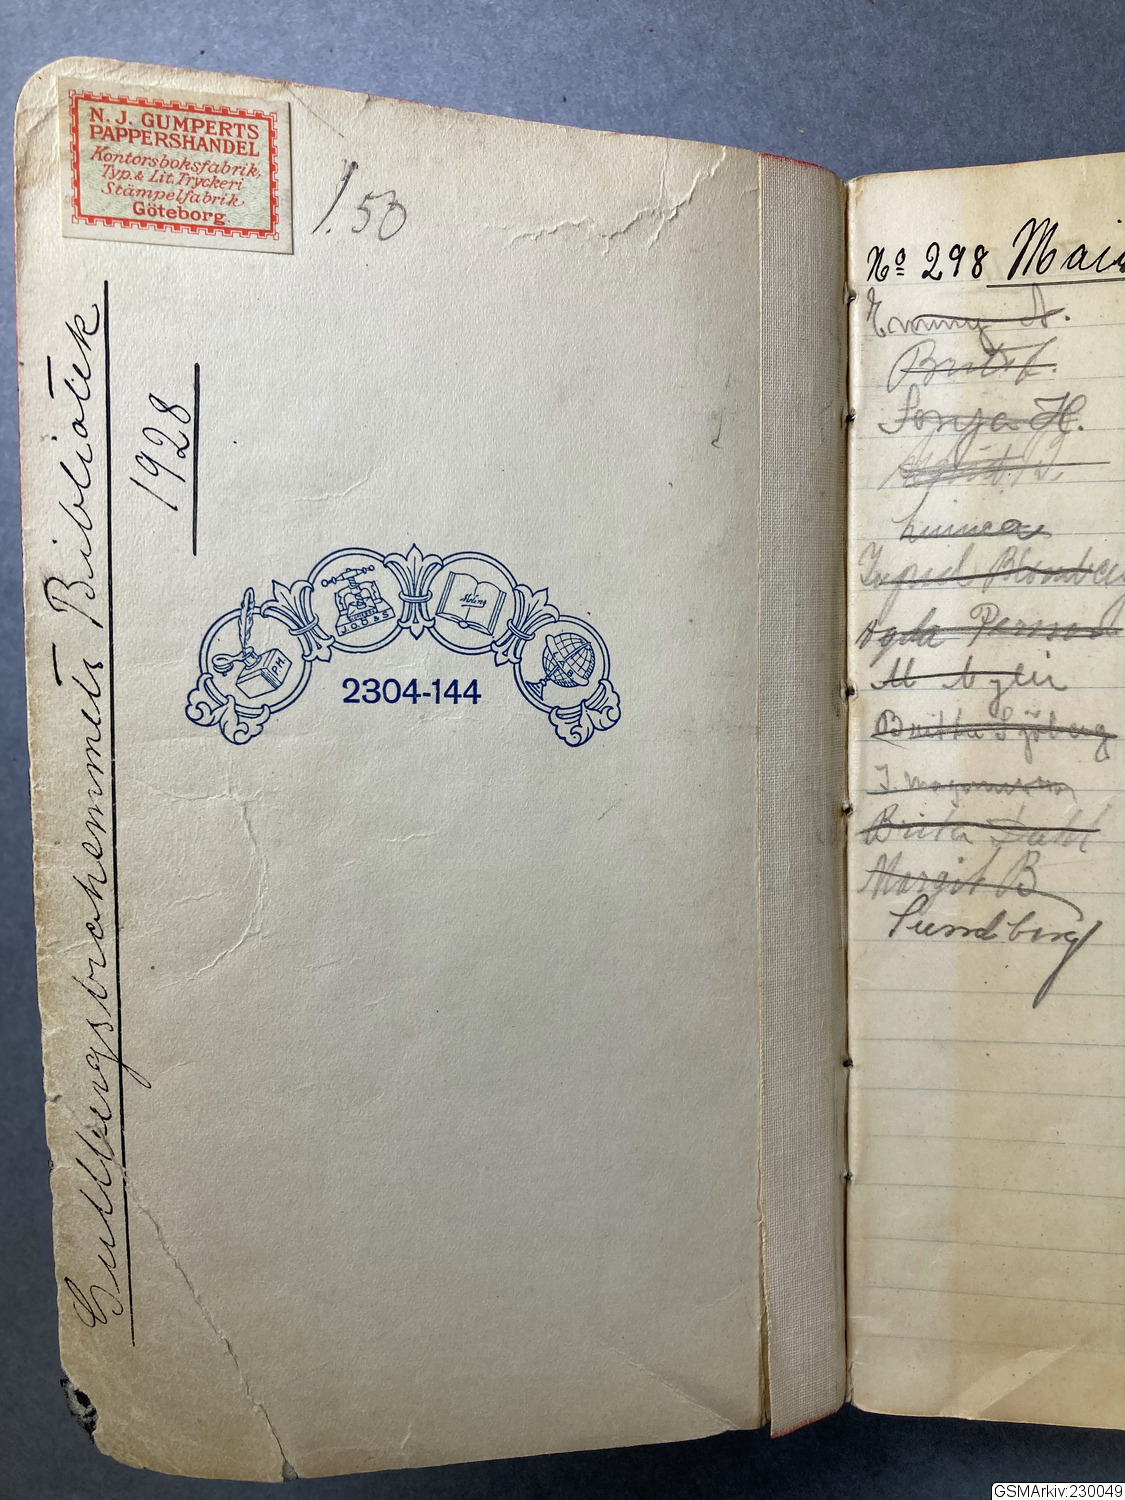 N. J. GUMPERTS
PAPPERSHANDEL
Kontorsboksfabrik,
Typ. & Lit. Tryckeri
Stämpelfabrik
Göteborg.
1.50
Gullbergsbrohemmets Bibliotek
1928
J.O.O & S
Molins
PM
2304-144
No 298 Mais
Emmy A.
Brita F.
Sonja H.
Linnea
Ingrid Blomberg
Agda Persson
M
Britta Sjöberg
I Magnusson
Brita Dahl
Margit B
Sundberg
GSMArkiv:230049